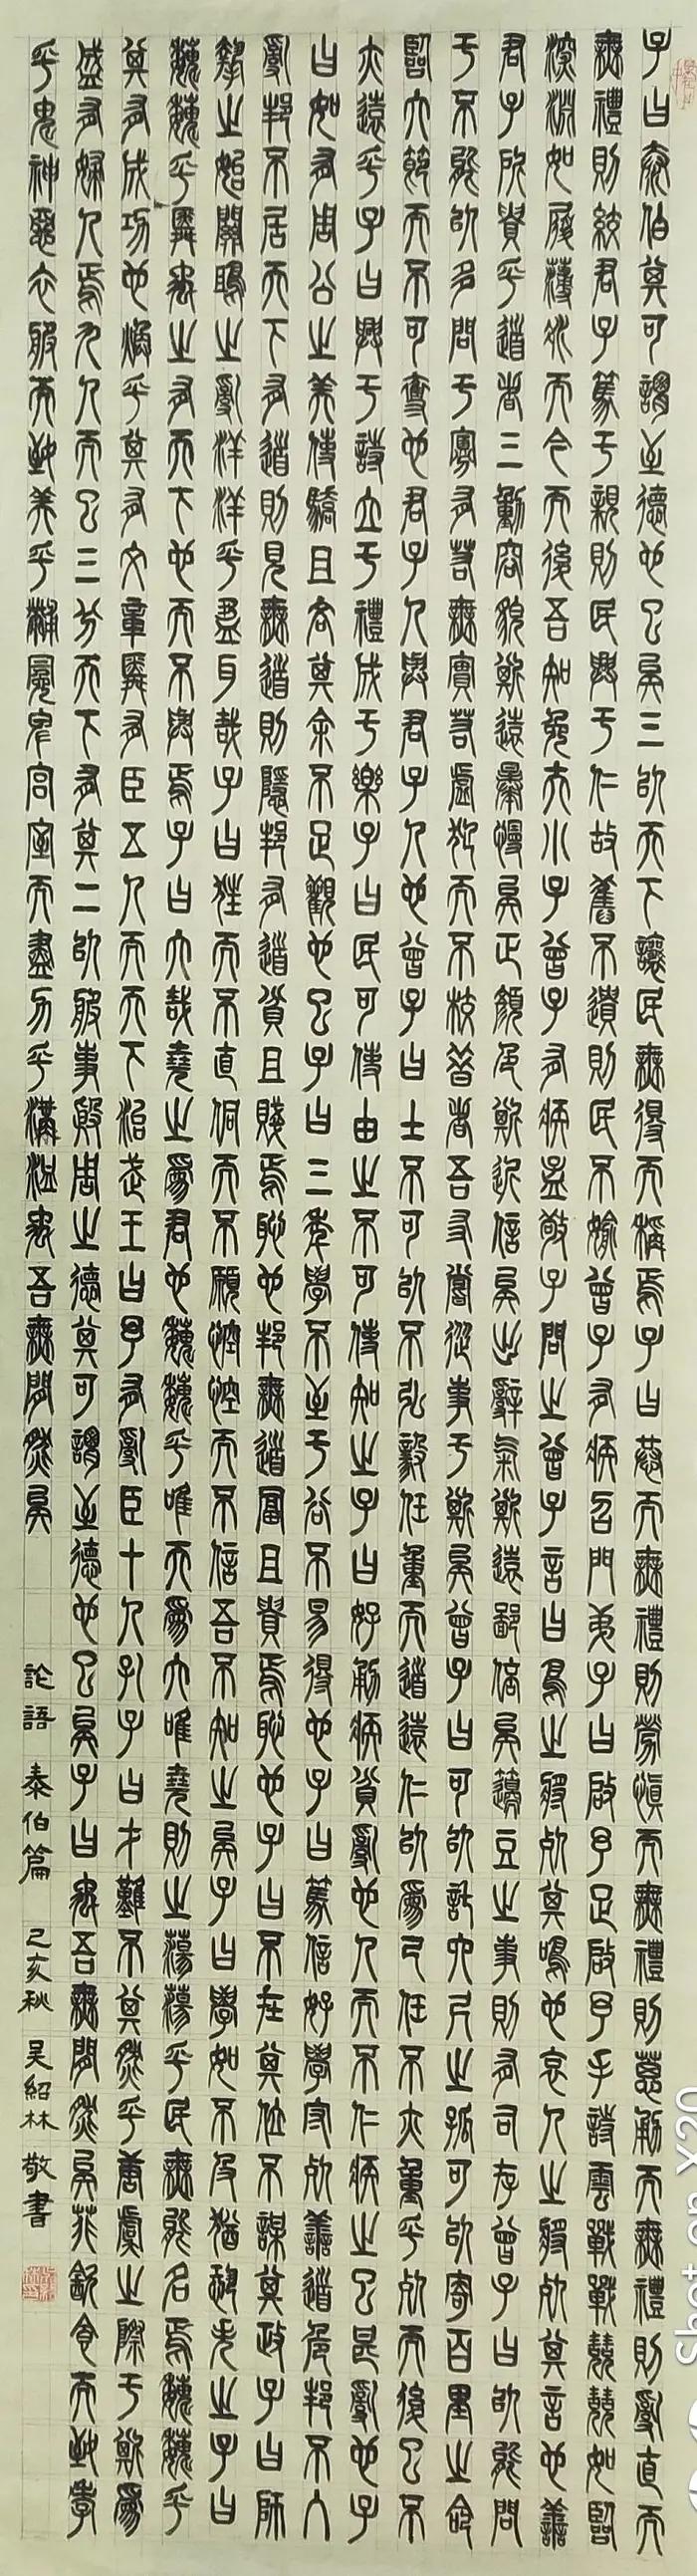 子曰泰伯其可謂至德也已矣三以天下讓民無得而稱焉子曰恭而無禮則勞慎而無禮則葸勇而無禮則亂直而
無禮則絞君子篤于親則民興于仁故舊不遺則民不偷曾子有疾召門弟子曰啟予足啟予手詩雲戰戰兢兢如臨
深淵如履薄冰而今而後吾知免夫小子曾子有疾孟敬子問之曾子言曰鳥之將死其鳴也哀人之將死其言也善
君子所貴乎道者三動容貌斯遠暴慢矣正顏色斯近信矣出辭氣斯遠鄙倍矣籩豆之事則有司存曾子曰以能問
于不能以多問于寡有若無實若虛犯而不校昔者吾友嘗從事于斯矣曾子曰可以託六尺之孤可以寄百里之命
臨大節而不可奪也君子人與君子人也曾子曰士不可以不弘毅任重而道遠仁以為己任不亦重乎死而後已不
亦遠乎子曰興于詩立于禮成于樂子曰民可使由之不可使知之子曰好勇疾貧亂也人而不仁疾之已甚亂也子
曰如有周公之美使驕且吝其余不足觀也已子曰三年學不至于谷不易得也子曰篤信好學守死善道危邦不入
亂邦不居天下有道則見無道則隱邦有道貧且賤焉恥也邦無道富且貴焉恥也子曰不在其位不謀其政子曰師
摯之始關雎之亂洋洋乎盈耳哉子曰狂而不直侗而不願悾悾而不信吾不知之矣子曰學如不及猶恐失之子曰
巍巍乎舜禹之有天下也而不與焉子曰大哉堯之為君也巍巍乎唯天為大唯堯則之蕩蕩乎民無能名焉巍巍乎
其有成功也煥乎其有文章舜有臣五人而天下治武王曰予有亂臣十人孔子曰才難不其然乎唐虞之際于斯為
盛有婦人焉九人而已三分天下有其二以服事殷周之德其可謂至德也已矣子曰禹吾無間然矣菲飲食而致孝
乎鬼神惡衣服而致美乎黻冕卑宮室而盡力乎溝洫禹吾無間然矣
論語 泰伯篇 己亥秋 吳紹林 敬書